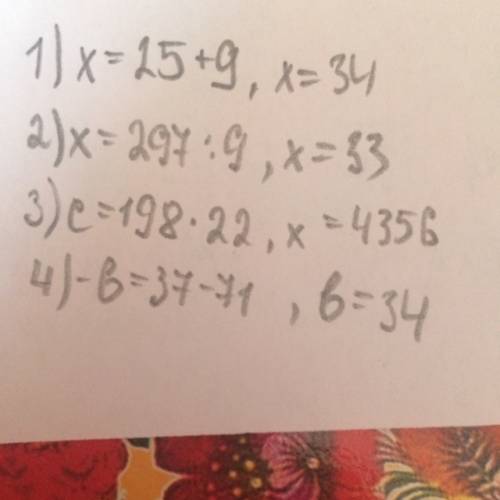 1) x = 25 + 9, x = 34
2) x = 297 : 9, x = 33
3) c = 198 · 22, x = 4356
4) - в = 37 - 71, в = 34